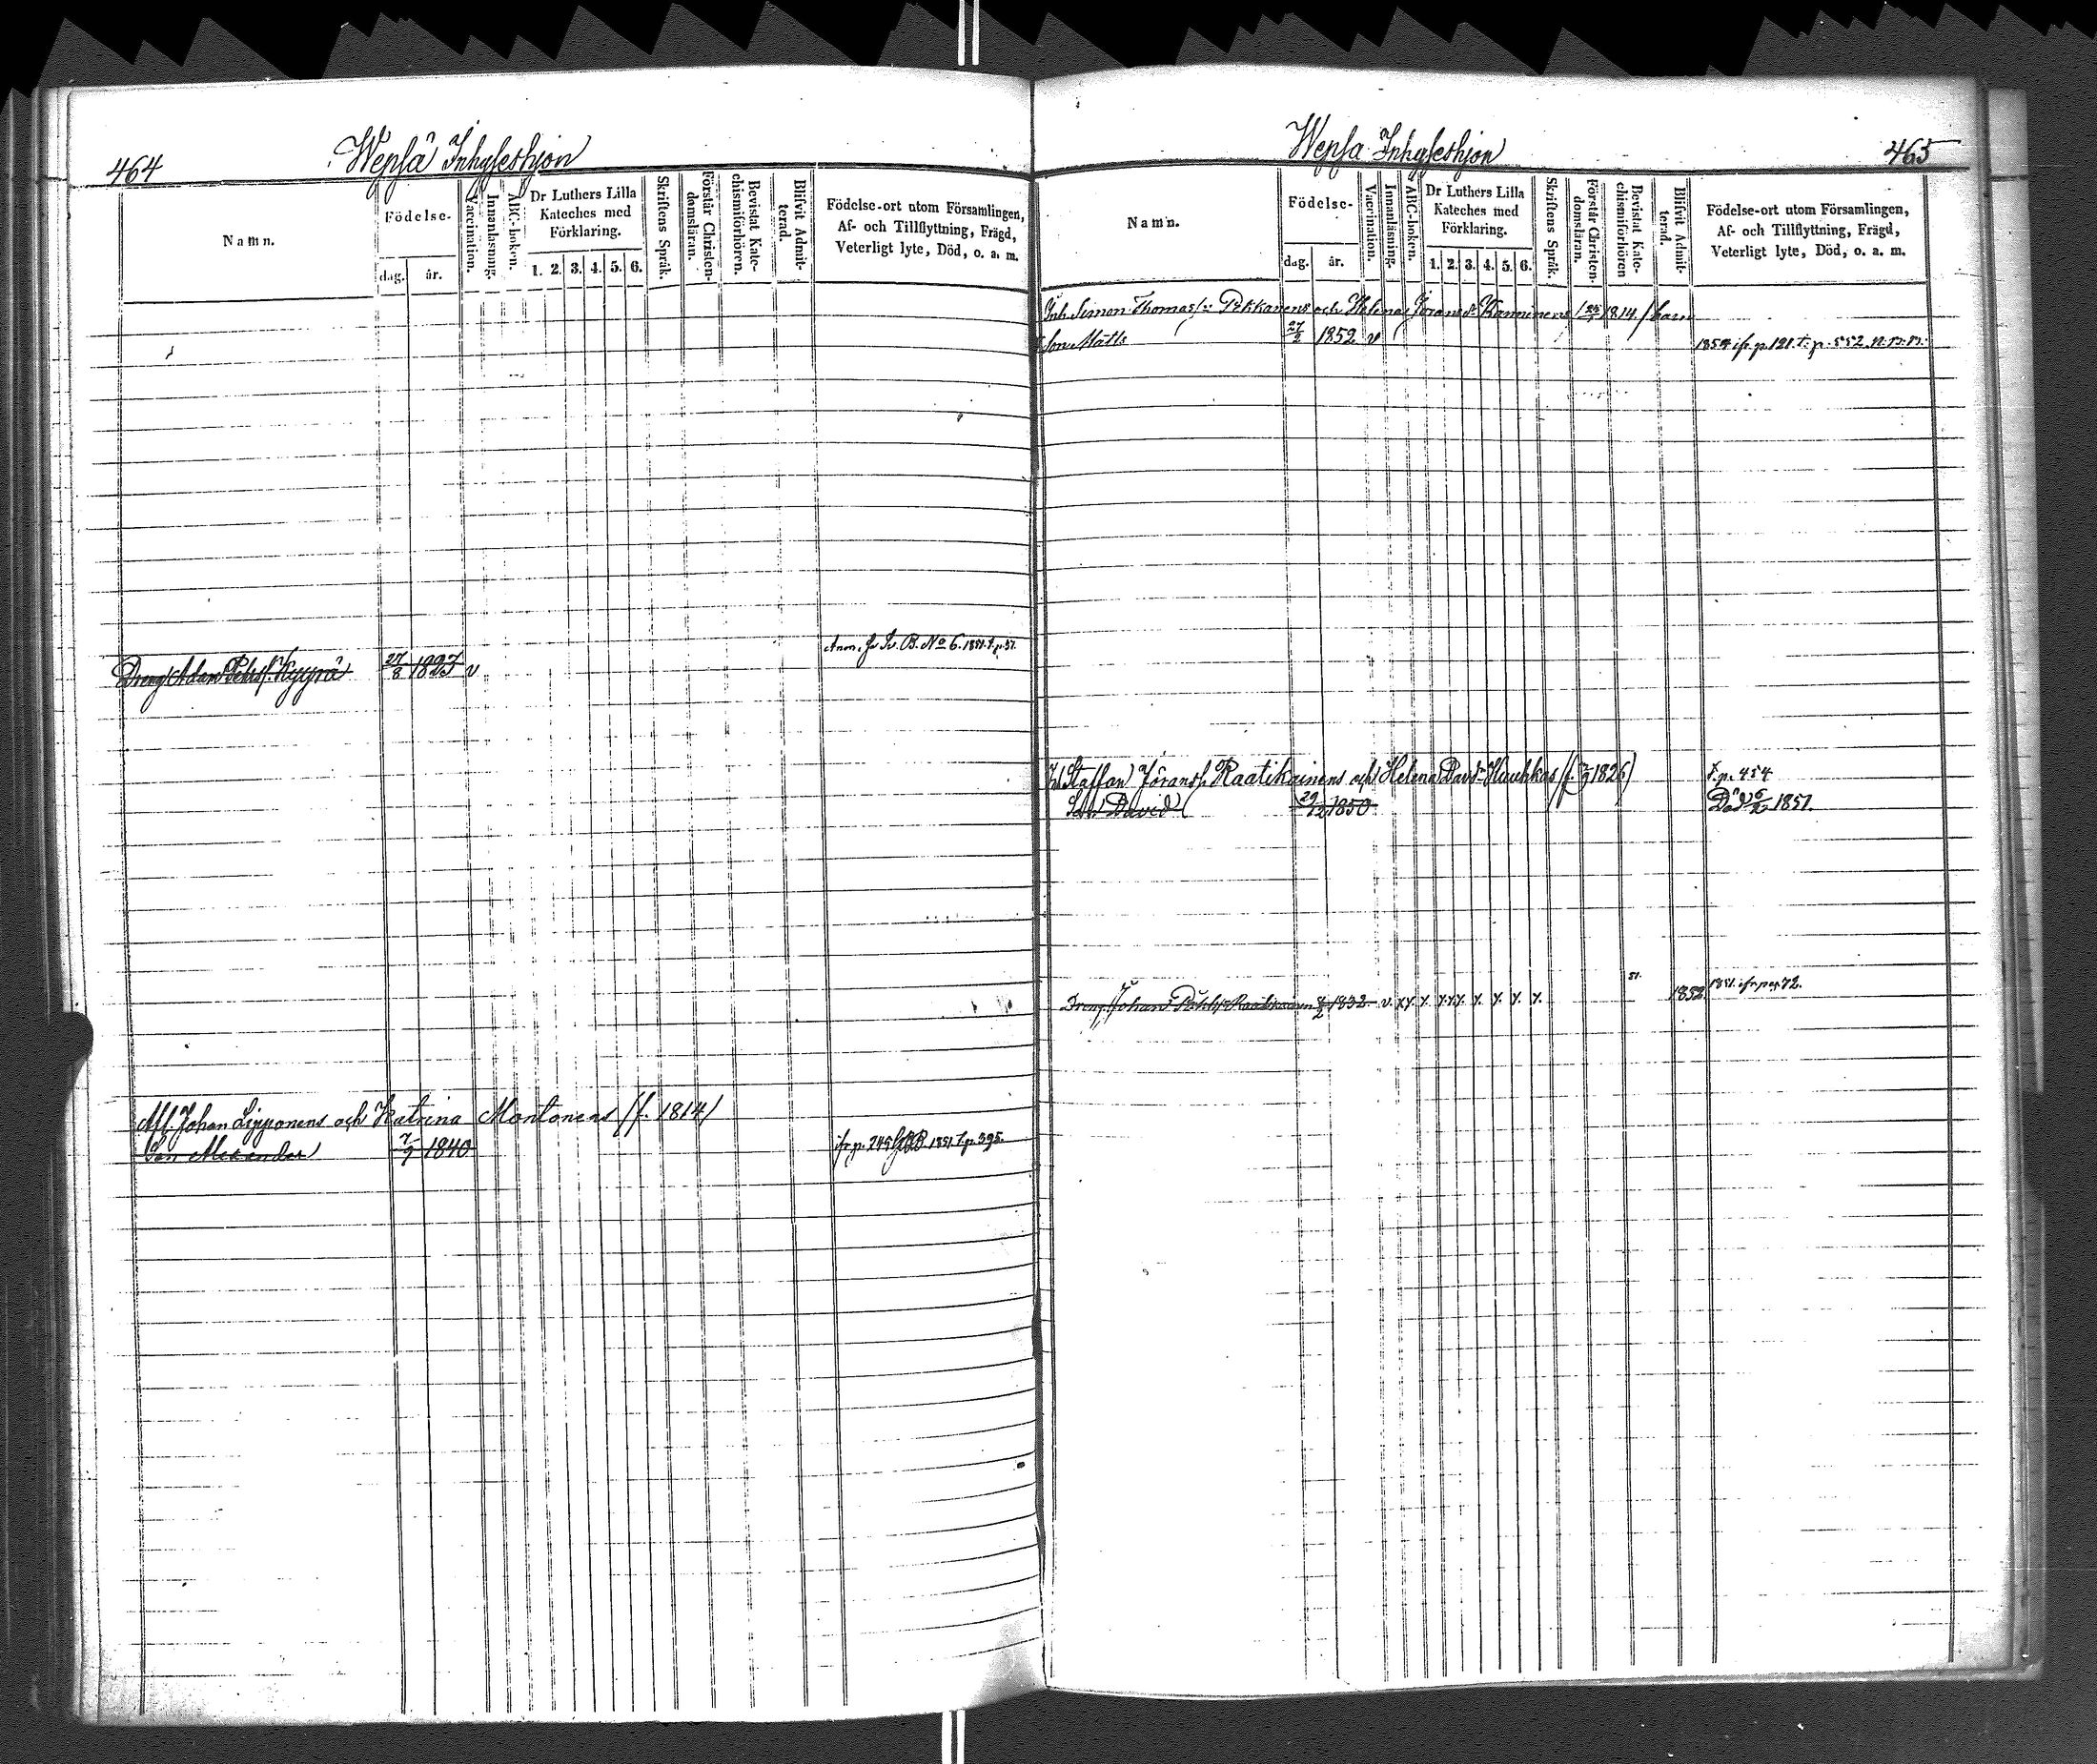 464
Wepsä Inhyseshjon
Namn.
Födelse-
dag.
år.
Vaccination.
Innanläsning.
ABC-boken.
Dr Luthers Lilla
Kateches med
Förklaring.
1. 2. 3. 4. 5. 6.
Skriftens Språk.
Förstår Christen-
domsläran.
Bevistat Kate-
chismiförhören.
Blifvit Admit-
terad.
Födelse-ort utom Församlingen,
Af- och Tillflyttning, Frägd,
Veterligt lyte, Död, o. a. m.
B. No 6. 1851. t. p. 37.
Dreng Adam Pehrs. Kyyrä 27/8 1837 v
Afl. Johan Lipponens och Katrina Montonens (f. 1814)
Son Alexander 7/9 1840 ifr. p. 245 1851. t. p. 395.
Wepsa Inhyseshjon
465
Namn.
Födelse-
dag.
år.
Vaccination.
Innanläsning.
ABC-boken.
Dr Luthers Lilla
Kateches med
Förklaring.
1. 2. 3. 4. 5. 6.
Skriftens Språk.
Förstår Christen-
domsläran.
Bevistat Kate-
chismiförhören
Blifvit Admit-
terad.
Födelse-ort utom Församlingen,
Af- och Tillflyttning, Frägd,
Veterligt lyte, Död, o. a. m.
Inh. Simon Thomass. Pekkarens och Helena Joransd. 1814 / barn
Son Matts 27/2 1852 v 1854 ifr. p. 121. t. p. 552
Inh. Staffan Jöranss. Raatikainens och Helena Davd. Huuhkas (f. 1826) t. p. 454
Son David 29/12 1850 Död 1851.
51.
Dreng Johan Raatikainen 1832 v. x x x x x x x x x x 1852 1851. ifr. p. 72.